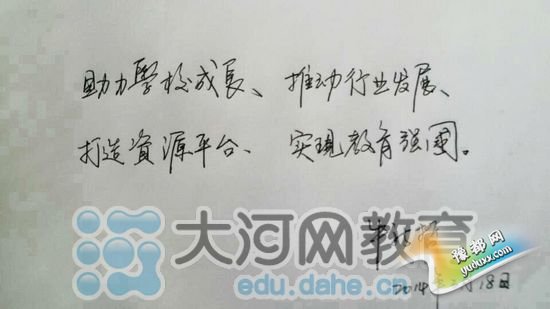 助力學校成長、推动行业发展、
打造資源平台、实現教育强國。
大河网教育
edu.dahe.cn
豫都网
yuduxx.com
18日